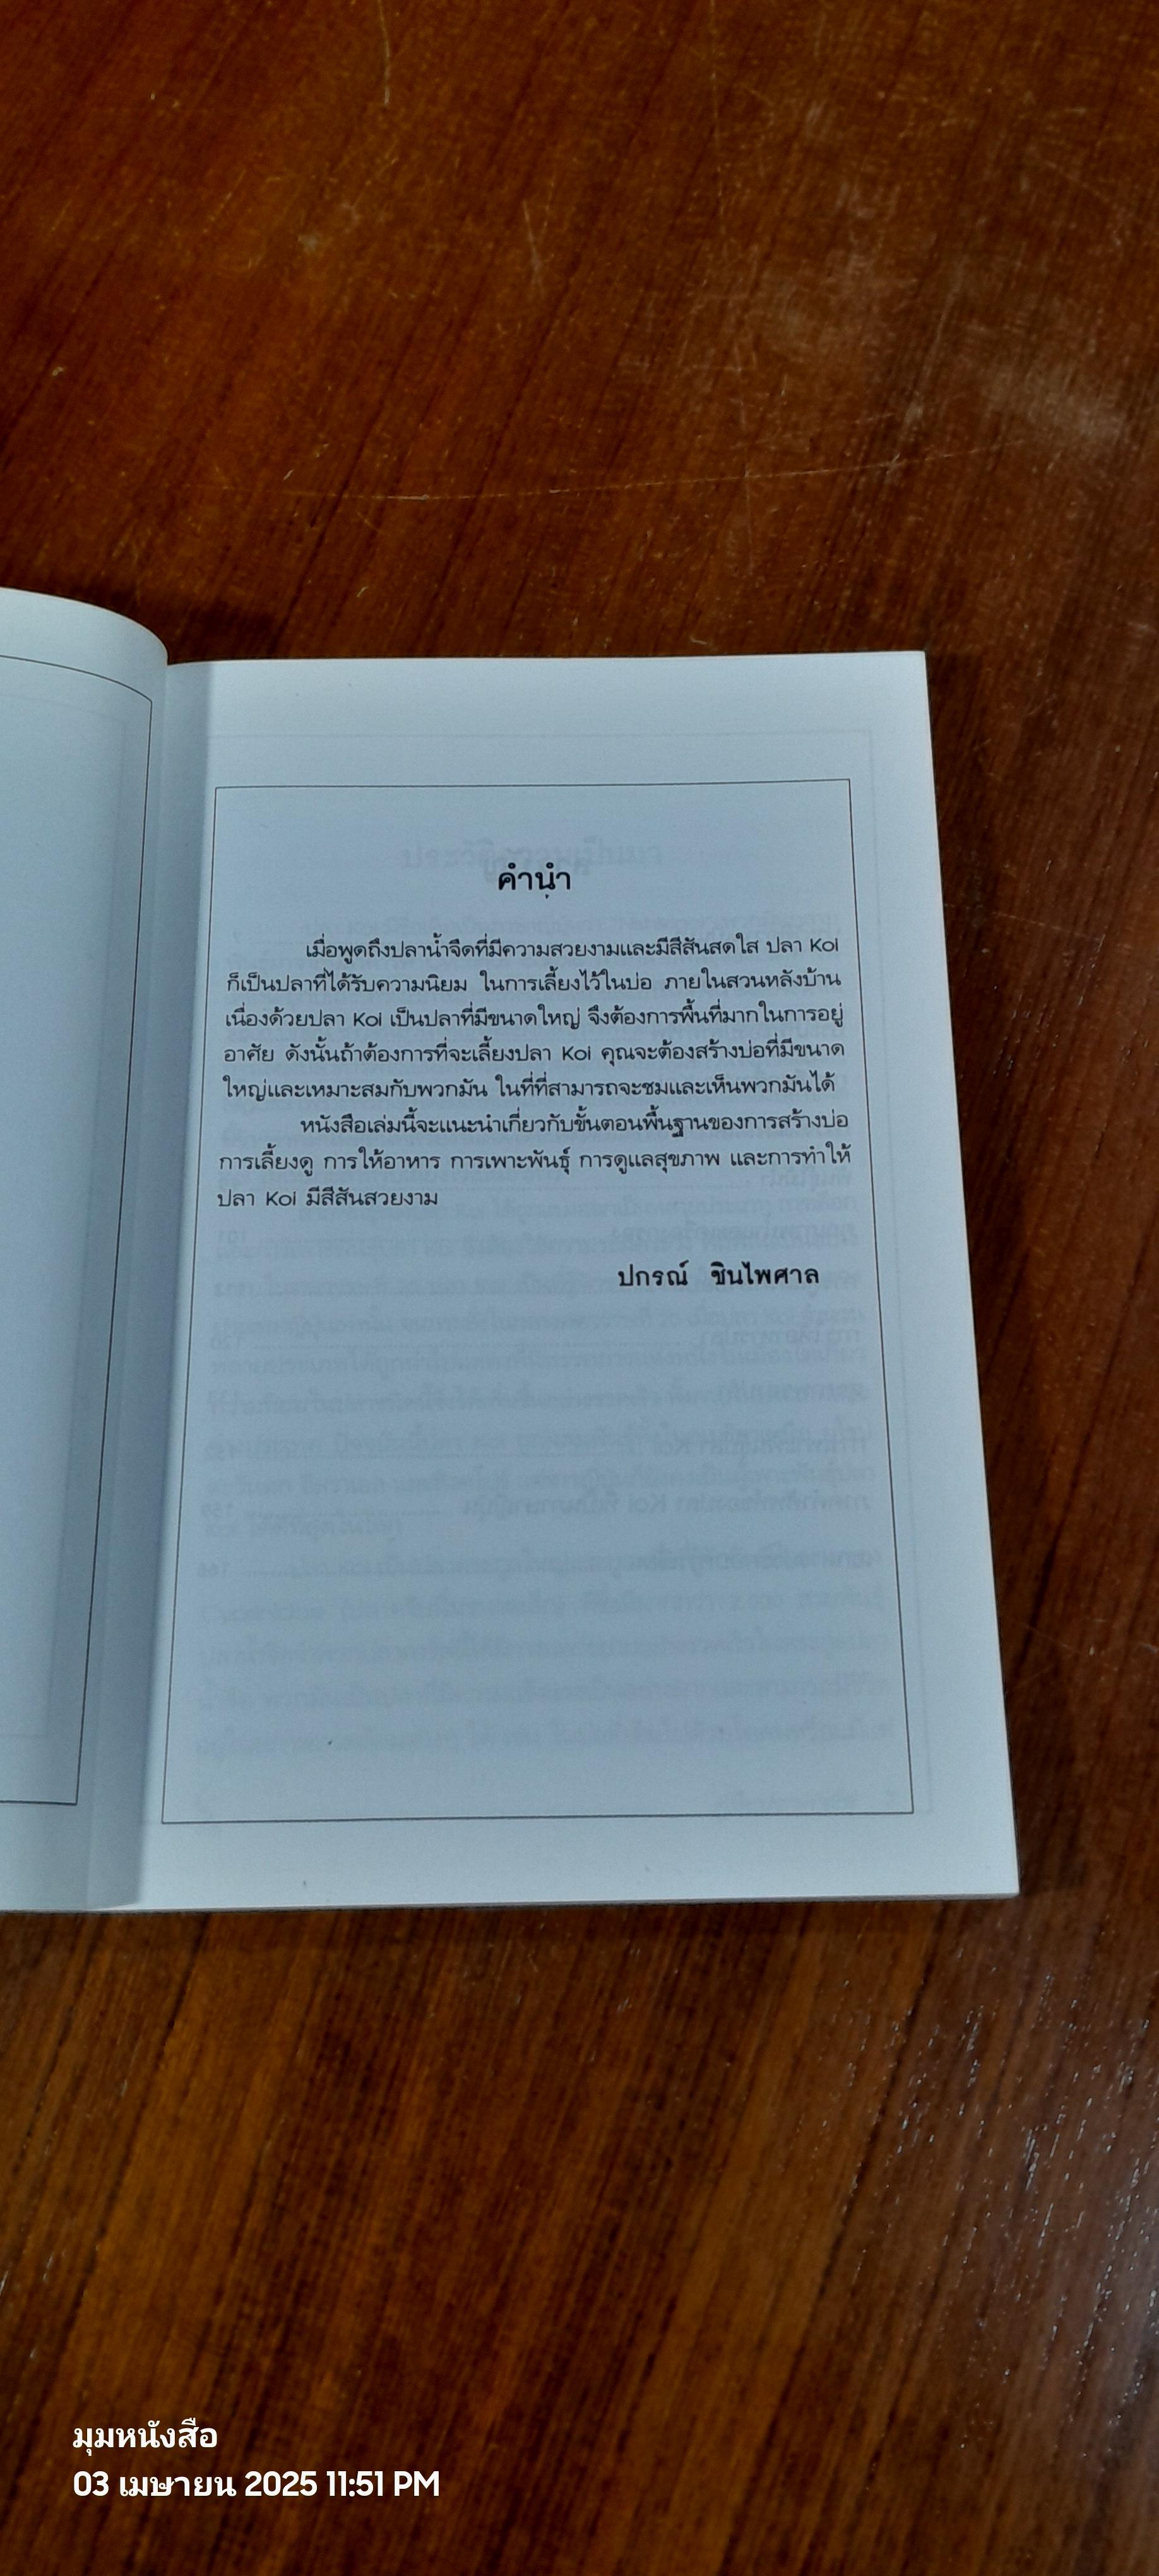 คำนำ
เมื่อพูดถึงปลาน้ำจืดที่มีความสวยงามและมีสีสันสดใส ปลา Koi
ก็เป็นปลาที่ได้รับความนิยม ในการเลี้ยงไว้ในบ่อ ภายในสวนหลังบ้าน
เนื่องด้วยปลา Koi เป็นปลาที่มีขนาดใหญ่ จึงต้องการพื้นที่มากในการอยู่
อาศัย ดังนั้นถ้าต้องการที่จะเลี้ยงปลา Koi คุณจะต้องสร้างบ่อที่มีขนาด
ใหญ่และเหมาะสมกับพวกมัน ในที่ที่สามารถจะชมและเห็นพวกมันได้
หนังสือเล่มนี้จะแนะนำเกี่ยวกับขั้นตอนพื้นฐานของการสร้างบ่อ
การเลี้ยงดู การให้อาหาร การเพาะพันธุ์ การดูแลสุขภาพ และการทำให้
ปลา Koi มีสีสันสวยงาม
ปกรณ์ ชินไพศาล
มุมหนังสือ
03 เมษายน 2025 11:51 PM